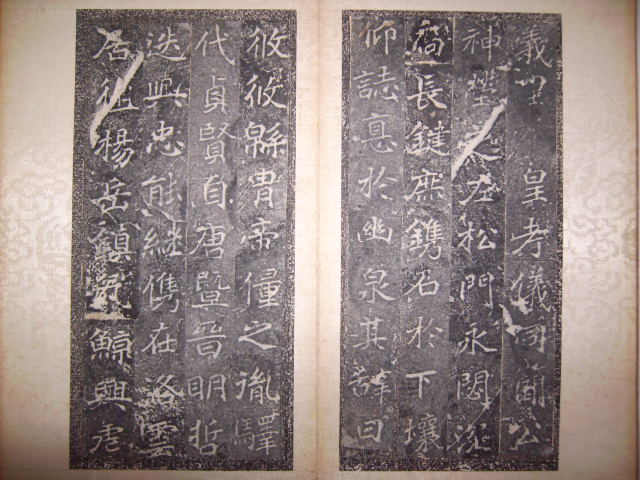 皇考儀同簡公
神塋之左松門永閟深
扃長鍵庶鐫石於下壤
仰誌悳於幽泉其辭曰
攸攸緜胄帝僮之胤驛
代貞賢自唐暨晉明哲
迭興忠能繼儁在洛雲
居徙楊岳鎮鯨興虎